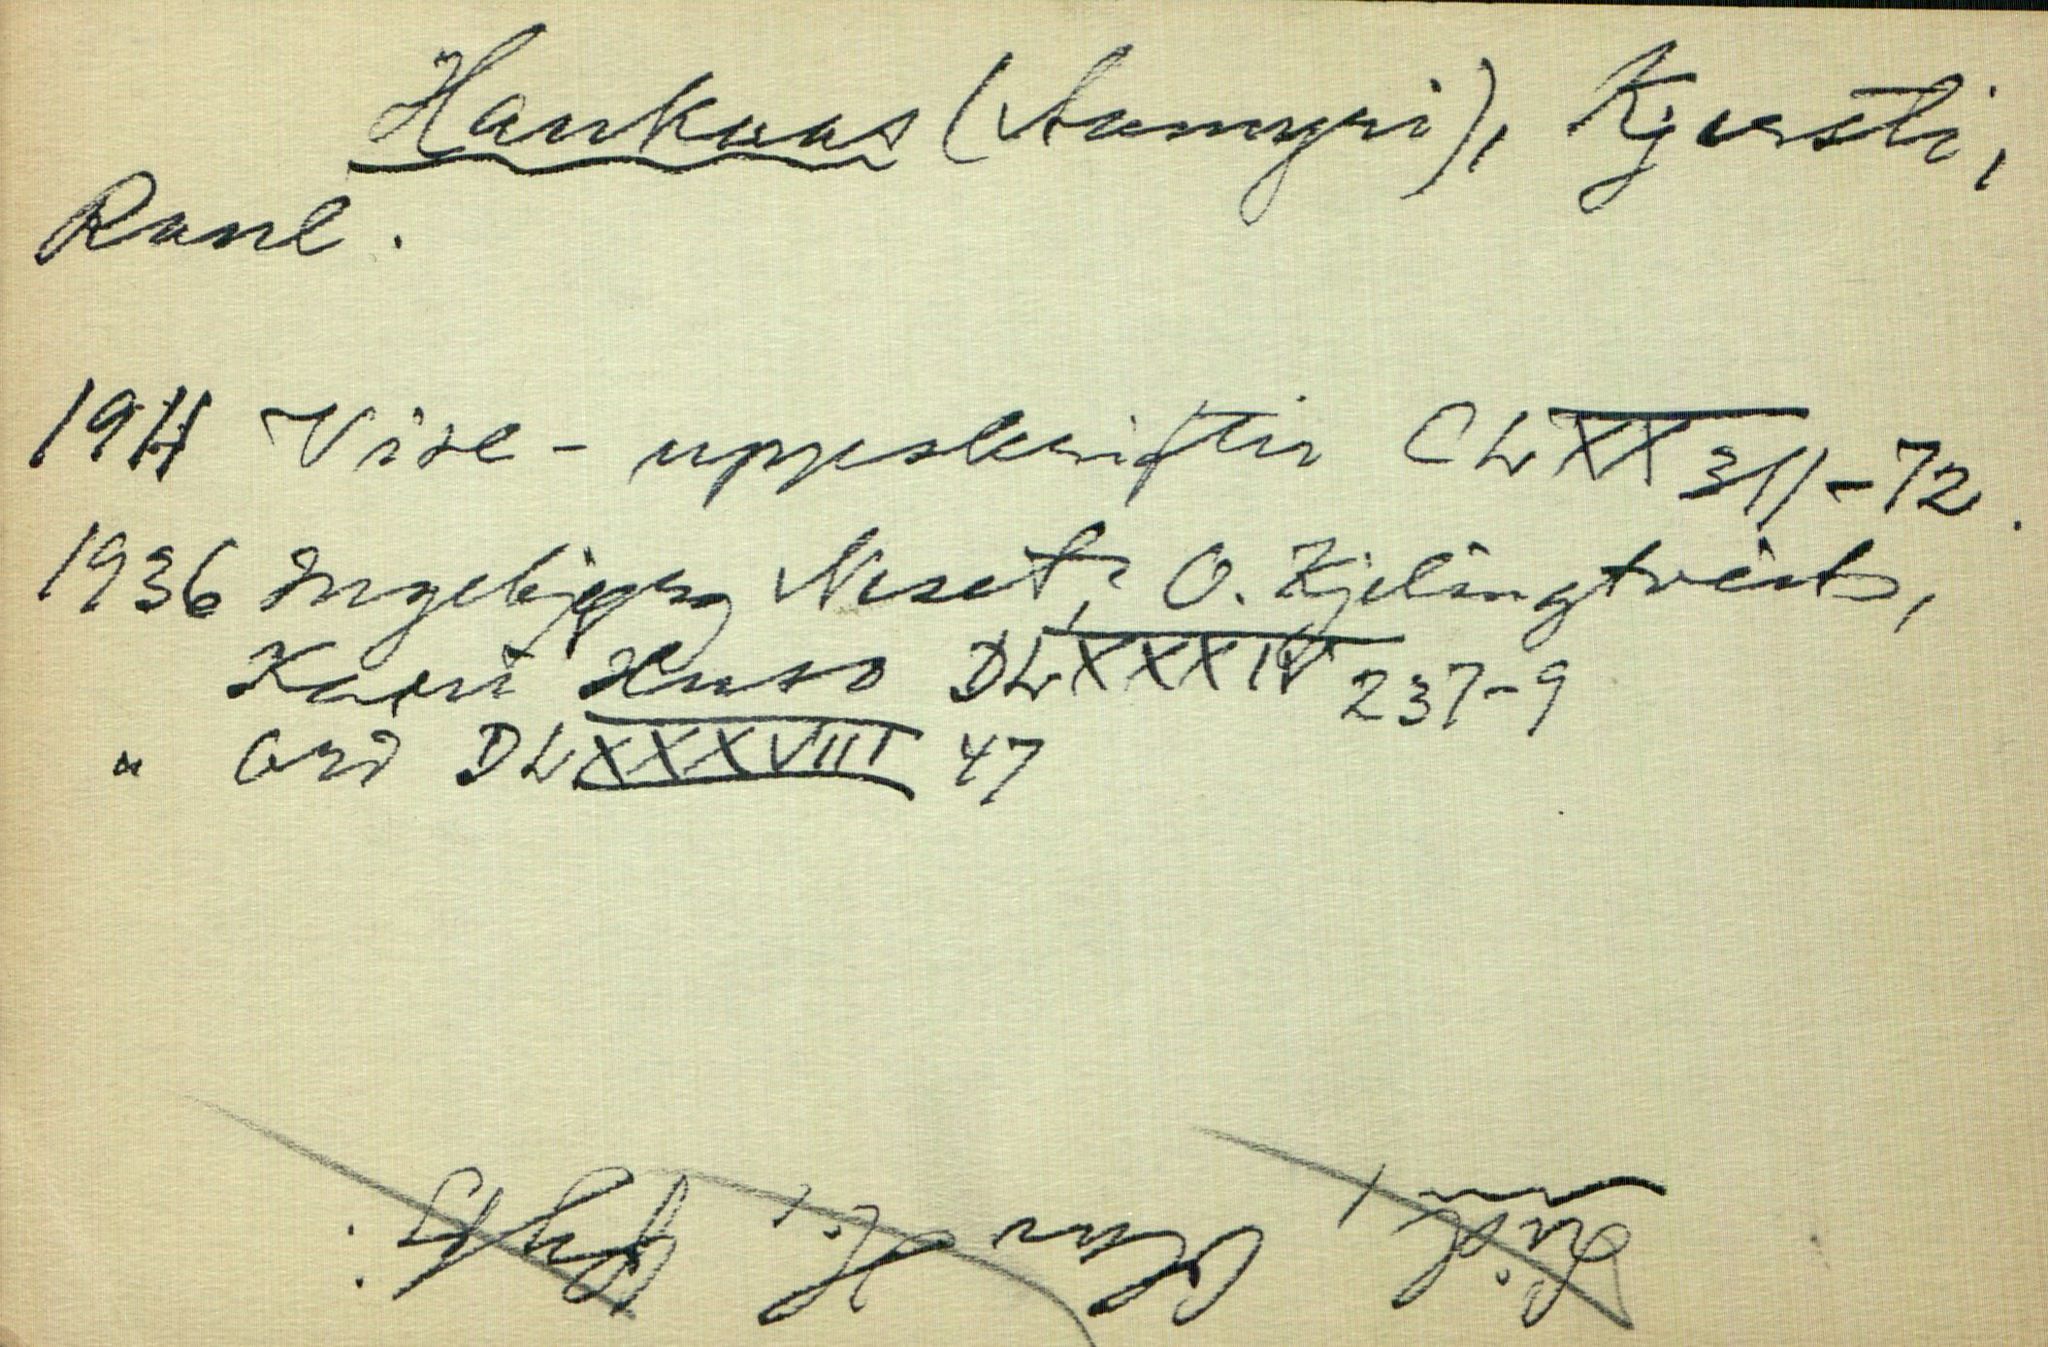 Haukaas (Aamyri), Kjersti,
Raul.
1911 Vise-uppskrifter CLXX 311-72.
1936 Ingebjørg Neset, O. Kjelingtveit,
Kari Huso DLXXXIV 237-9
" Ord DLXXXVIII 47
Olav H.,